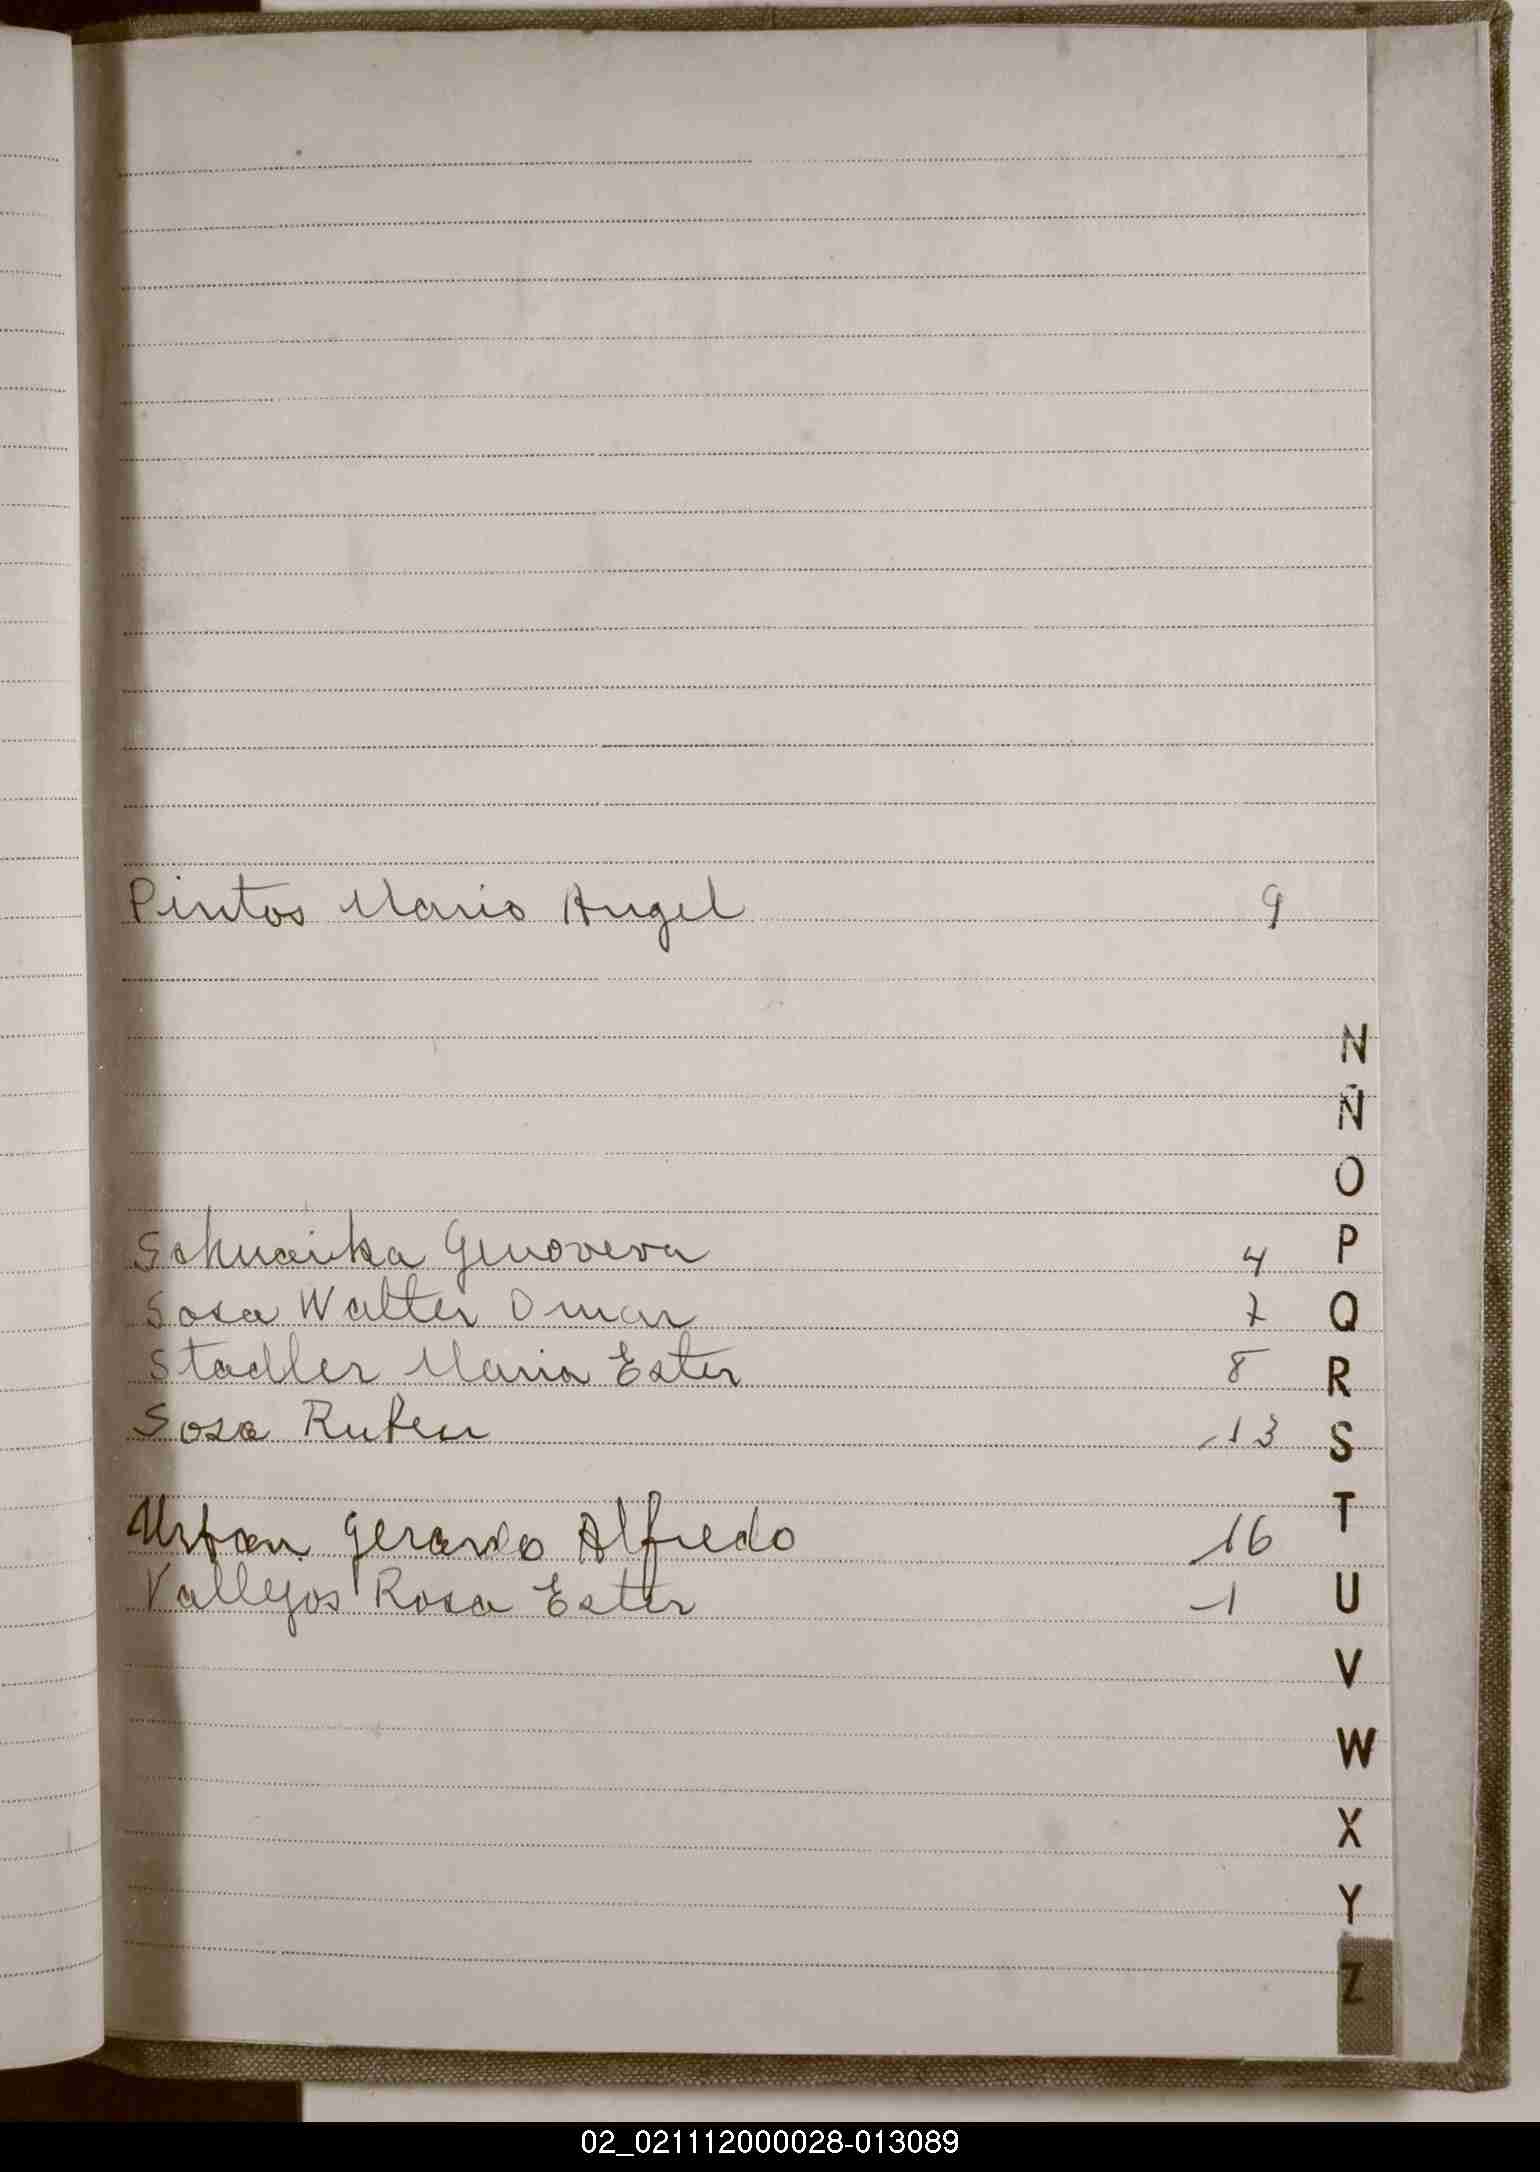 Pintos Mario Angel 9
N
Ñ
O
P
Genoveva 4
Q
Sosa Walter Omar 7
R
Stadler Maria Ester 8
S
Sosa Ruben 13
T
Urban Gerardo Alfredo 16
U
Vallejos Rosa Ester 1
V
W
X
Y
Z
02_021112000028-013089